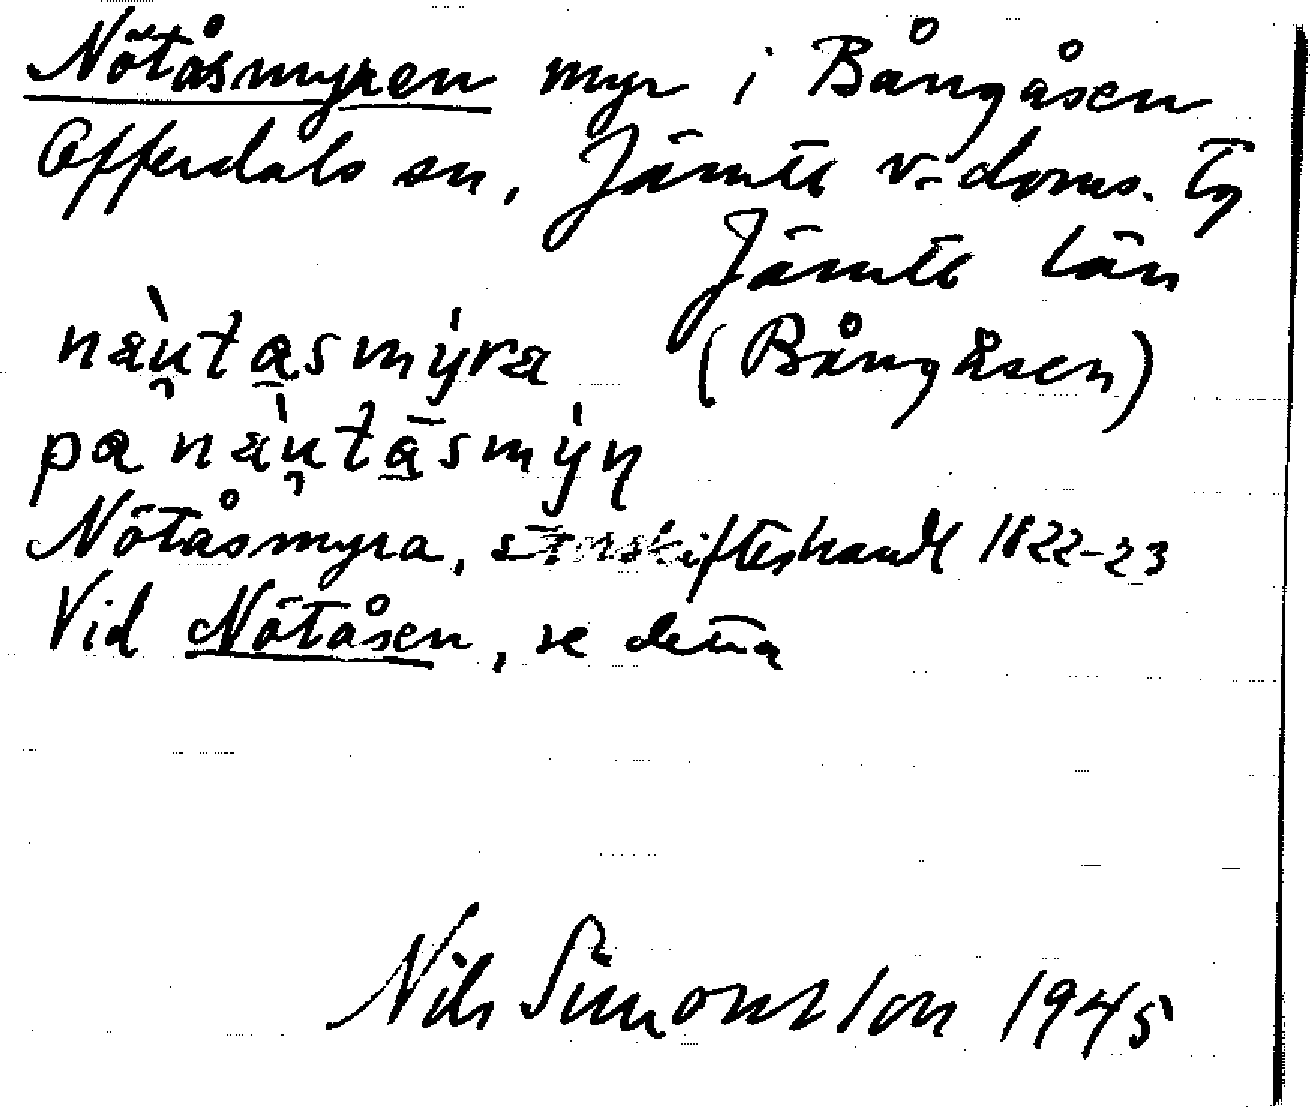 Nötåsmyren myr i Bångåsen
Offerdals sn, Jämtl v. doms. Tg
Jämtl län
nàu̯tasmýra (Bångåsen)
pa nàu̯tāsmýn
Nötåsmyra, storskifteshandl 1822-23
Vid Nötåsen, se detta
Nils Simonsson 1945